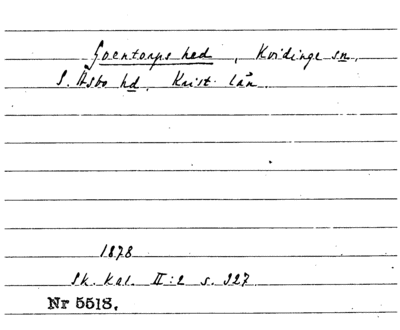 Goentorps hed, Kvidinge sn,
S. Åsbo hd, Krist. län.
1878
Sk. Kal. II:2 s. 327
Nr 5518.